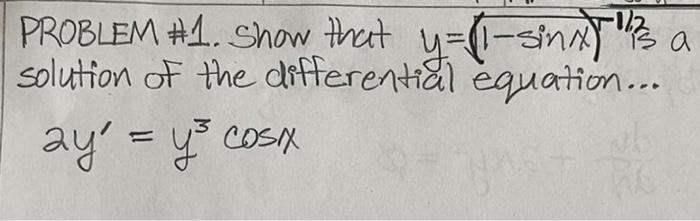 PROBLEM #1. Show that y=√(1-sinx)^-1/2 is a
solution of the differential equation...
2y' = y³ cosx